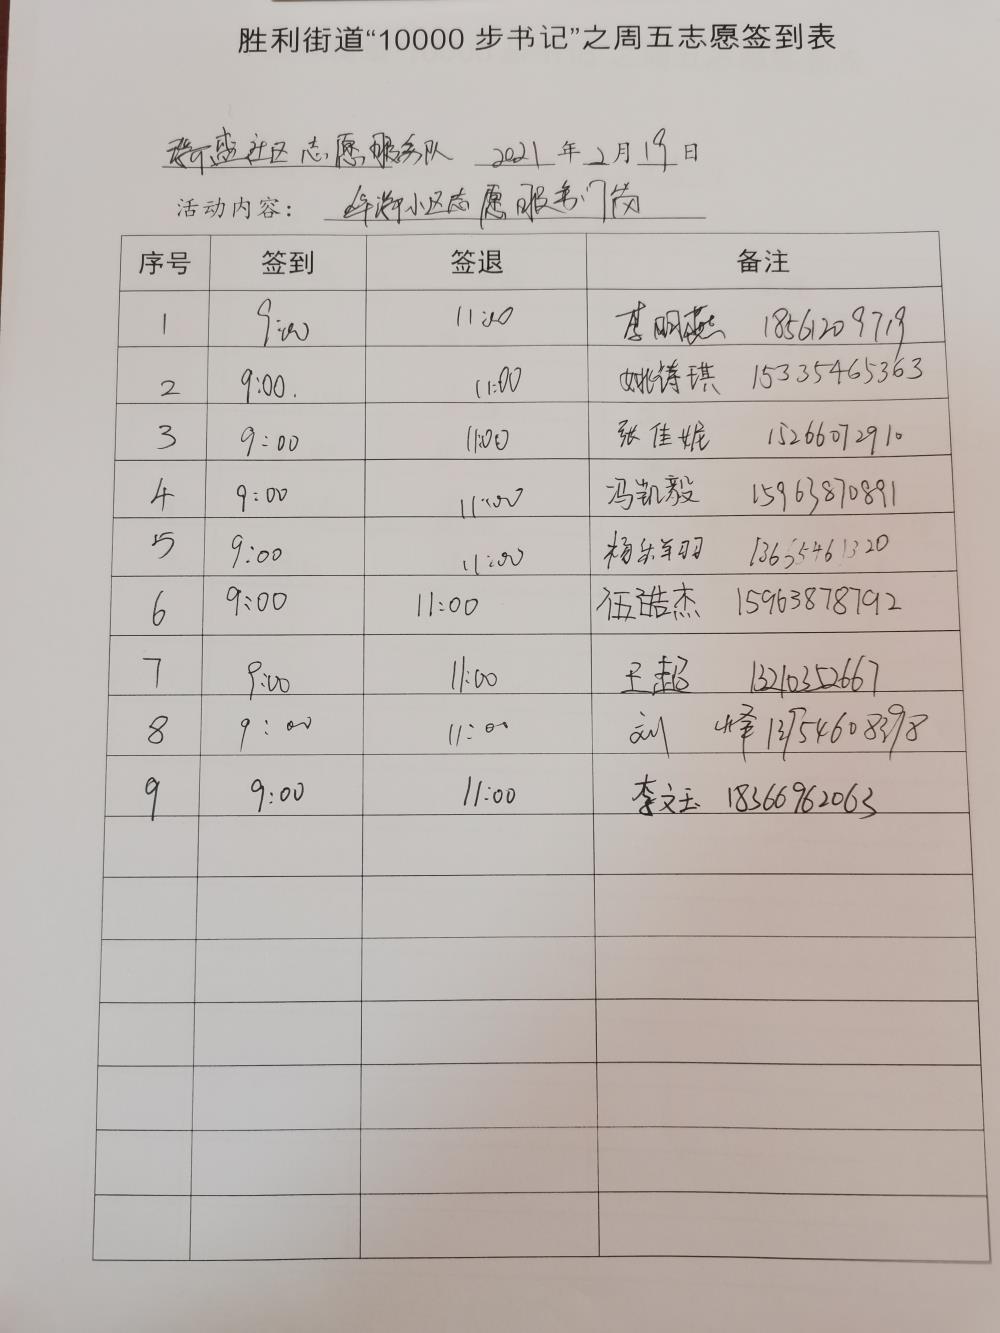 胜利街道“10000 步书记”之周五志愿签到表
社区志愿服务队 2021 年 2 月 19 日
活动内容： 小区志愿服务门岗
序号 签到 签退 备注
1 9:00 11:00 李明燕 18561209719
2 9:00. 11:00 姚铸琪 15335465363
3 9:00 11:00 张佳妮 15266072910
4 9:00 11:00 冯凯毅 15963870891
5 9:00 11:00 13655461320
6 9:00 11:00 伍浩杰 15963878792
7 9:00 11:00 王超 13210352667
8 9:00 11:00 刘 峰 13954608398
9 9:00 11:00 李文玉 18366962063